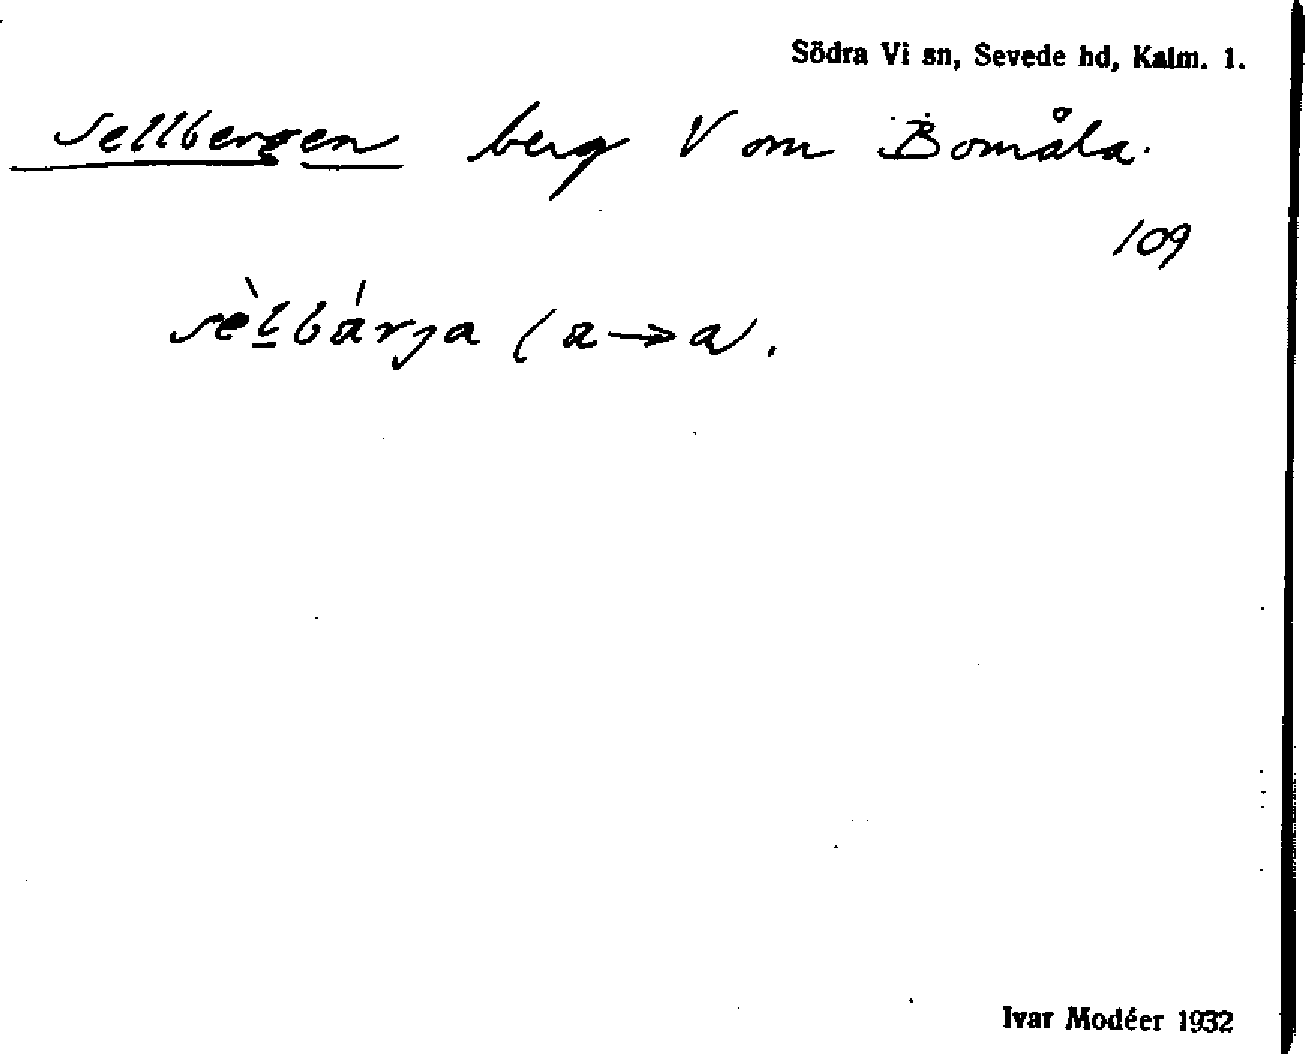 Södra Vi sn, Sevede hd, Kalm. l.
Sellbergen berg V om Bomåla.
109
sèlbárja (a→a).
Ivar Modéer 1932